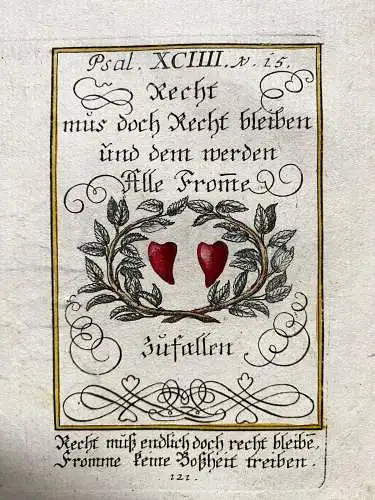 Psal. XCIIII. N. 15.
Recht
mus doch Recht bleiben
und dem werden
Alle From̅e
Zufallen
Recht muß endlich doch recht bleibe,
Fromme keine Boßheit treiben.
121.